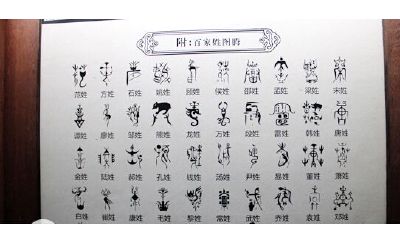 附:百家姓图腾
范姓 方姓 石姓 姚姓 邱姓 侯姓 邵姓 孟姓 梁姓 宋姓
谭姓 廖姓 邹姓 熊姓 龙姓 万姓 段姓 雷姓 韩姓 唐姓
金姓 陆姓 郝姓 孔姓 钱姓 汤姓 尹姓 易姓 董姓 萧姓
白姓 崔姓 康姓 毛姓 黎姓 常姓 武姓 乔姓 袁姓 邓姓